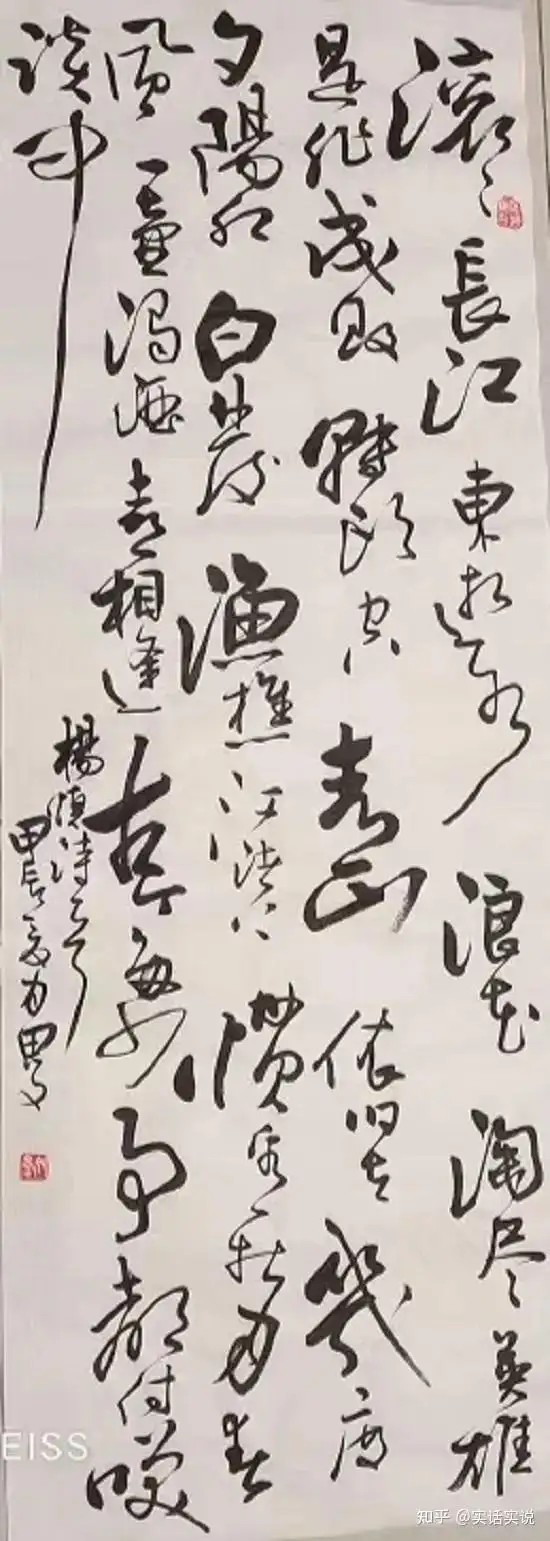 滚〻長江東逝水浪花淘尽英雄
是非成敗轉頭空青山依旧在幾度
夕陽红白发漁樵江渚上慣看秋月春
風一壺濁酒喜相逢古今多少事都付咲
談中
楊慎詩
甲辰
EISS
知乎 @实话实说